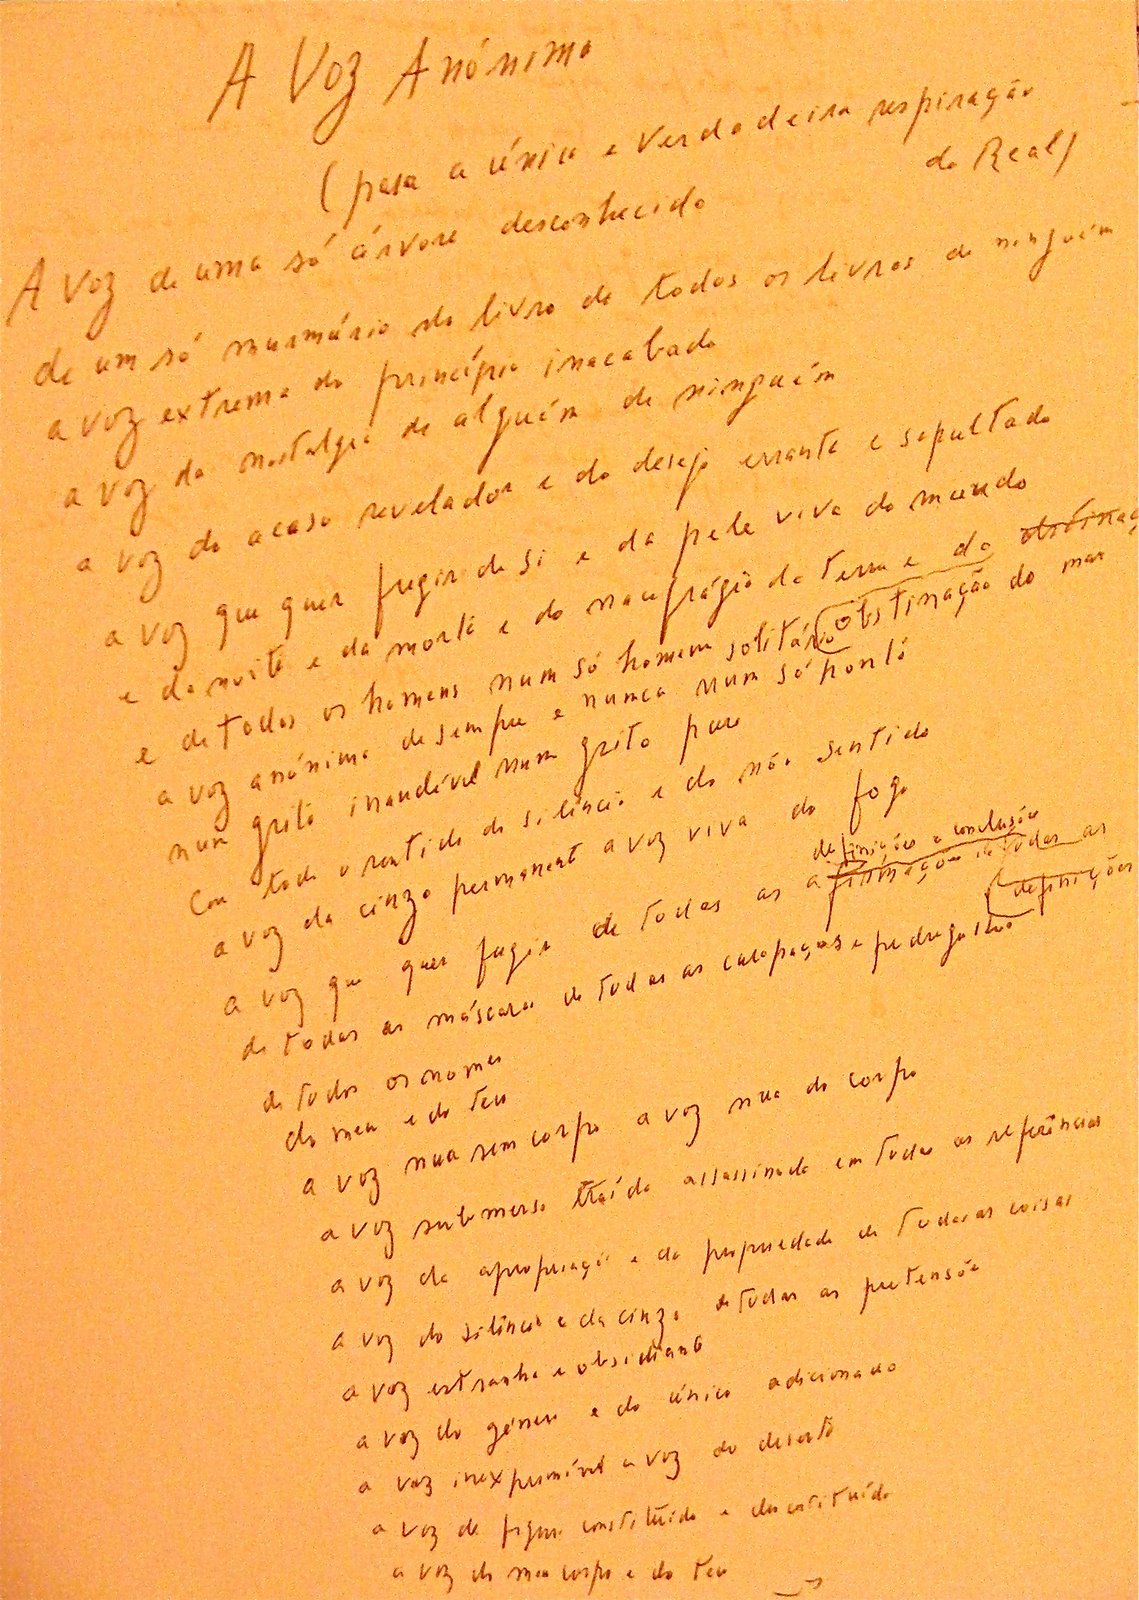 A Voz Anónima
(para a única e verdadeira respiração
do Real)
A voz de uma só árvore desconhecida
de um só murmúrio do livro de todos os livros de ninguém
a voz extrema do princípio inacabado
a voz da nostalgia de alguém de ninguém
a voz do acaso revelador e do desejo errante e sepultado
a voz que quer fugir de si e da pele viva do mundo
e da noite e da morte e do naufrágio da terra e da
obstinação do mar
e de todos os homens num só homem solitário
a voz anónima de sempre e nunca num só ponto
num grito inaudível num grito puro
com todo o sentido do silêncio e do não sentido
a voz da cinza permanente a voz viva do fogo
definições e conclusões
a voz que quer fugir de todas as afirmações de todas as
definições
de todas as máscaras de todas as carapaças e
de todos os nomes
do meu e do teu
a voz nua sem corpo a voz nua do corpo
a voz submersa traída assassinada em todas as referências
a voz da apropriação e da propriedade de todas as coisas
a voz do silêncio e da cinza de todas as pretensões
a voz estranha e obsidiante
a voz do género e do único adicionado
a voz inexprimível a voz do deserto
a voz da figura constituída e destituída
a voz do meu corpo e do teu